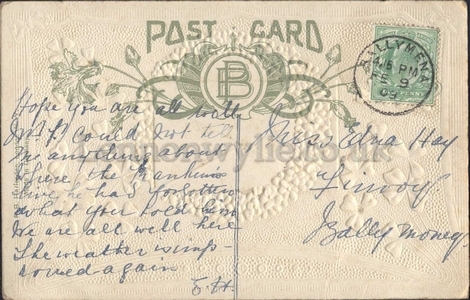 POST CARD
BP
BALLYMENA
4.15 PM
FE 9
Hope you are all well
Mr P could not tell
me anything about
where the Frankums
live he had forgotten
what you told him
We are all well here
The weather is imp-
roved again
E.H.
Miss Edna Hay
Finvoy
Ballymoney